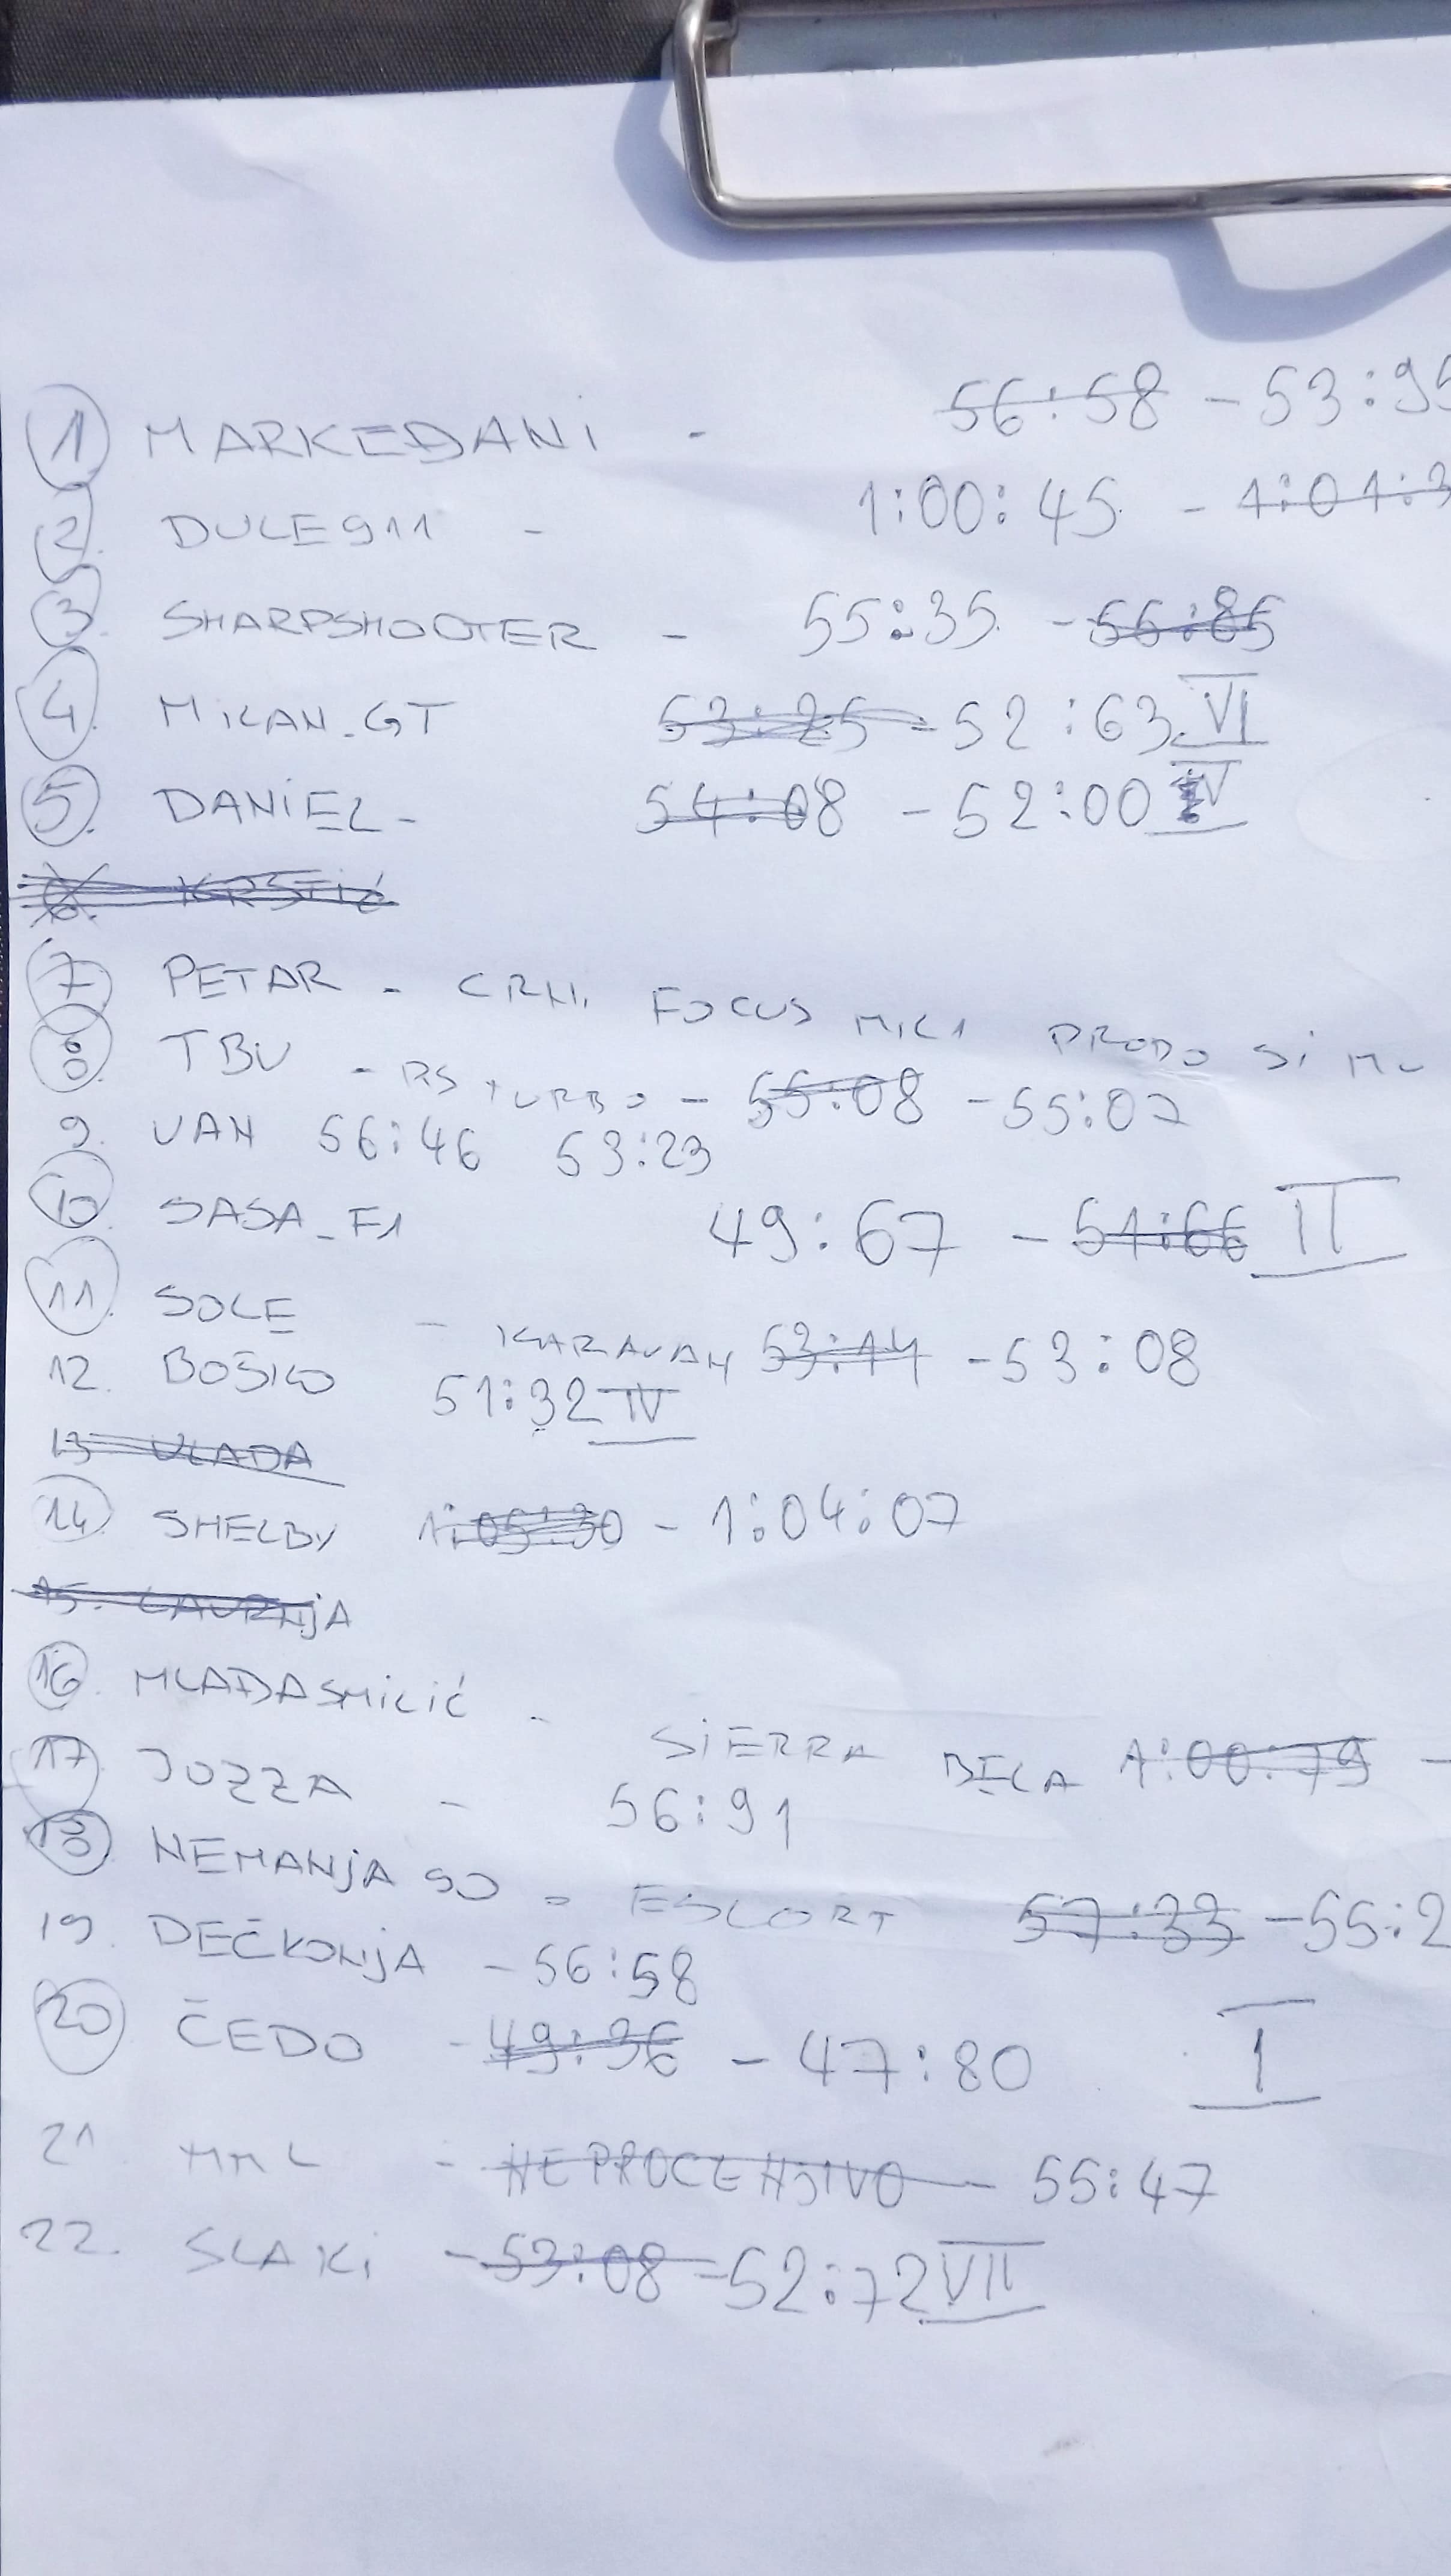 1 MARKEĐANI - 56:58 - 53:95
2. DULE911 - 1:00:45 - 1:01:3
3. SHARPSHOOTER - 55:35 - 56:85
4. MILAN_GT 53:25 - 52:63 VI
5. DANIEL - 54:08 - 52:00 V
6. KRSTIĆ
7 PETAR - CRNI FOCUS MK1 PRODO SI MU
8 TBU - RS TURBO - 55:08 - 55:07
9. VAN 56:46 53:23
10. SASA_F1 49:67 - 51:66 II
11. SOLE - KARAVAN 53:14 - 53:08
12. BOŠKO 51:32 IV
13 VLADA
14. SHELBY 1:05:30 - 1:04:07
15. LAVRNJA
16. MLAĐASMILIĆ - SIERRA BELA 1:00:79 -
17. JOZZA - 56:91
18 NEMANJA SO - ESCORT 57:33 - 55:2
19. DEČKONJA - 56:58
20 ČEDO - 49:36 - 47:80 I
21 - NEPROCENJIVO - 55:47
22. SLAKI - 53:08 - 52:72 VII